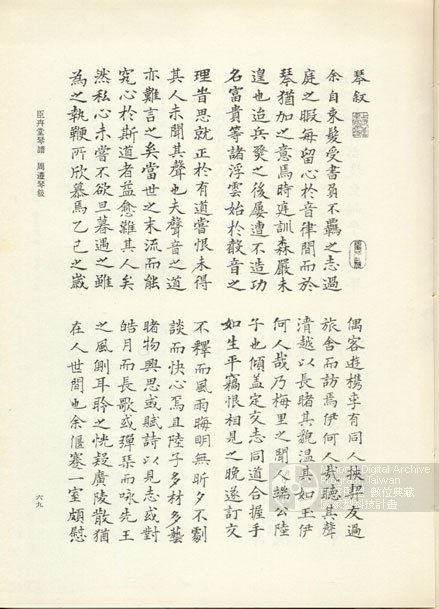 琴敘
余自束髮受書負不羈之志過
庭之暇每留心於音律間而於
琴猶加之意焉時庭訓森嚴未
遑也造兵燹之後屢遭不造功
名富貴等諸浮雲始於聲音之
理嘗思就正於有道嘗恨未得
其人未聞其聲也夫聲音之道
亦難言之矣當世之末流而能
究心於斯道者益愈難其人矣
然私心未嘗不欲旦暮遇之雖
為之執鞭所欣慕焉乙巳之歲
偶客遊檇李有同人挾契友過
旅舍而訪焉伊何人哉聽其聲
清越以長睹其貌溫其如玉伊
何人哉乃梅里之聞人端公陸
子也傾蓋定交志同道合握手
如生平竊恨相見之晚遂訂交
不釋而風雨晦明無昕夕不劇
談而快心焉且陸子多材多藝
睹物興思或賦詩以見志或對
皓月而長歌或彈琴而咏先王
之風側耳聆之恍疑廣陵散猶
在人世間也余偃蹇一室頗慰
臣卉堂琴譜 周邁琴敘
六九
Digital Archive
Program, Taiwan
數位典藏
技計畫